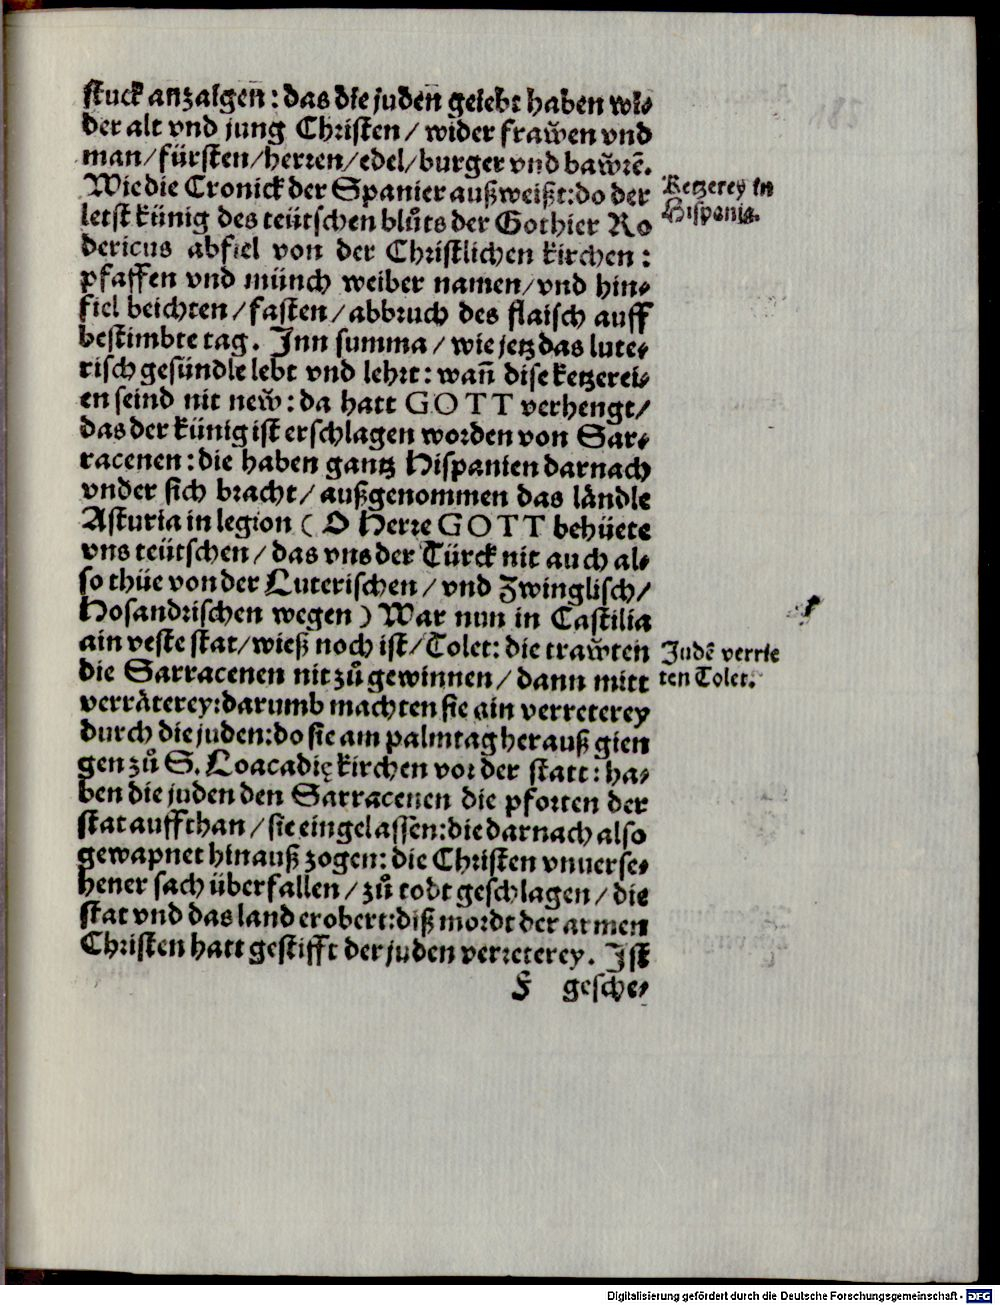 stuck anzaigen: das die juden̄ gelebt haben wi⸗
der alt vnd jung Christen/ wider fraw̆en vnd
man/ fürsten/ herren/ edel/ burger vnd baw̆rē.
Wie die Cronick der Spanier außweißt: do der
letst künig des teütschen blůts der Gothier Ro
dericus abfiel von der Christlichen kirchen:
pfaffen vnd münch weiber namen/ vnd hin⸗
fiel beichten/ fasten/ abbruch des flaisch auff
bestimbte tag. Inn summa/ wie jetz das lute⸗
risch gesündle lebt vnd lehrt: wañ dise ketzerei⸗
en seind nit new̆: da hatt GOTT verhengt/
das der künig ist erschlagen worden von Sar⸗
racenen: die haben gantz Hispanien darnach
vnder sich bracht/ außgenommen das ländle
Asturia in legion ( O Herre GOTT behüete
vns teütschen/ das vns der Türck nit auch al⸗
so thüe von der Luterischen/ vnd Zwinglisch/
Hosandrischen wegen ) War nun in Castilia
ain veste stat/ wieß noch ist/ Tolet: die traw̆ten
die Sarracenen nit zů gewinnen/ dann mitt
verräterey: darumb machten sie ain verreterey
durch die juden: do sie am palmtag herauß gien
gen zů S. Loacadię kirchen vor der statt: ha⸗
ben die juden den Sarracenen die pforten der
stat auffthan/ sie eingelassen: die darnach also
gewapnet hinauß zogen: die Christen vnuerse⸗
hener sach überfallen/ zů todt geschlagen/ die
stat vnd das land erobert: diß mordt der armen
Christen hatt gestifft der juden verreterey. Ist
F gesche⸗
Ketzerey in
Hispania.
Judē verrie
ten Tolet.
Digitalisierung gefördert durch die Deutsche Forschungsgemeinschaft - DFG